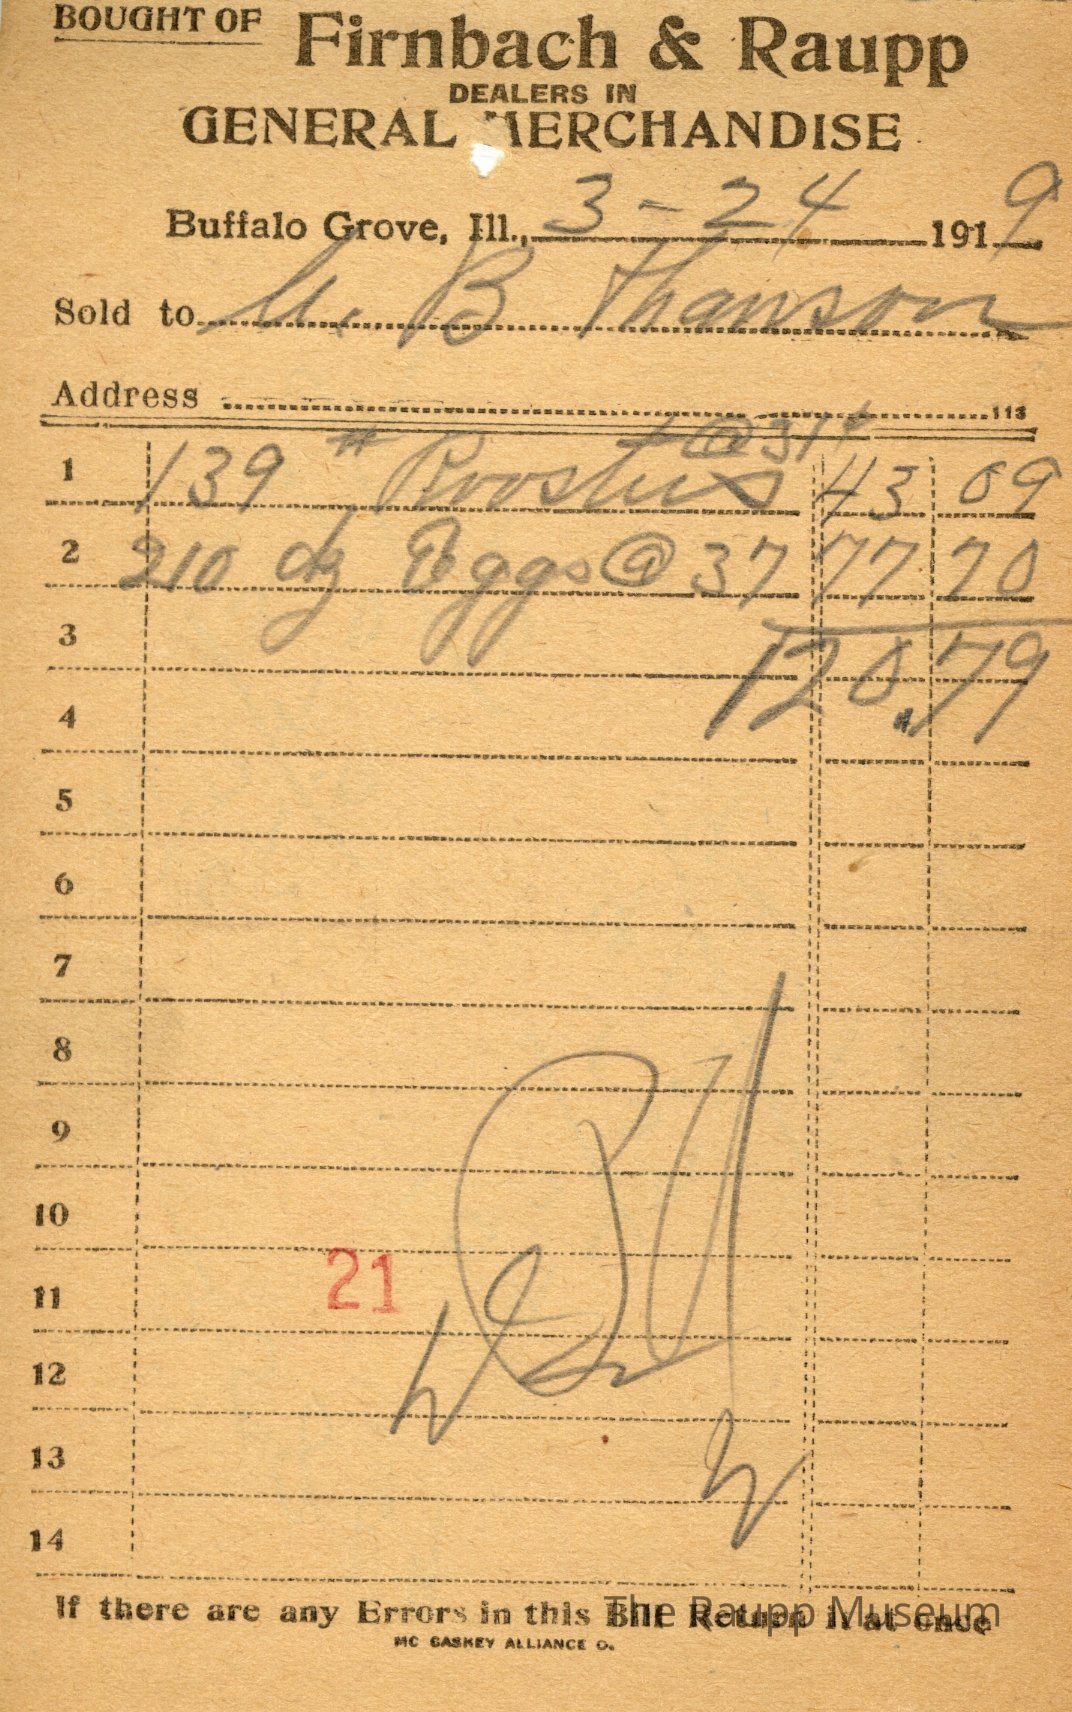 BOUGHT OF Firnbach & Raupp
DEALERS IN
GENERAL MERCHANDISE
Buffalo Grove, Ill., 3-24 1919
Sold to B Thanson
Address 113
@31¢
1 139 # Roosters 43 09
2 210 dz Eggs @ 37 77 70
3 120.79
4
5
6
7
8
9
10
21
11
12
13
14
If there are any Errors in this Bill Return it at once
The Raupp Museum
MC CASKEY ALLIANCE O.